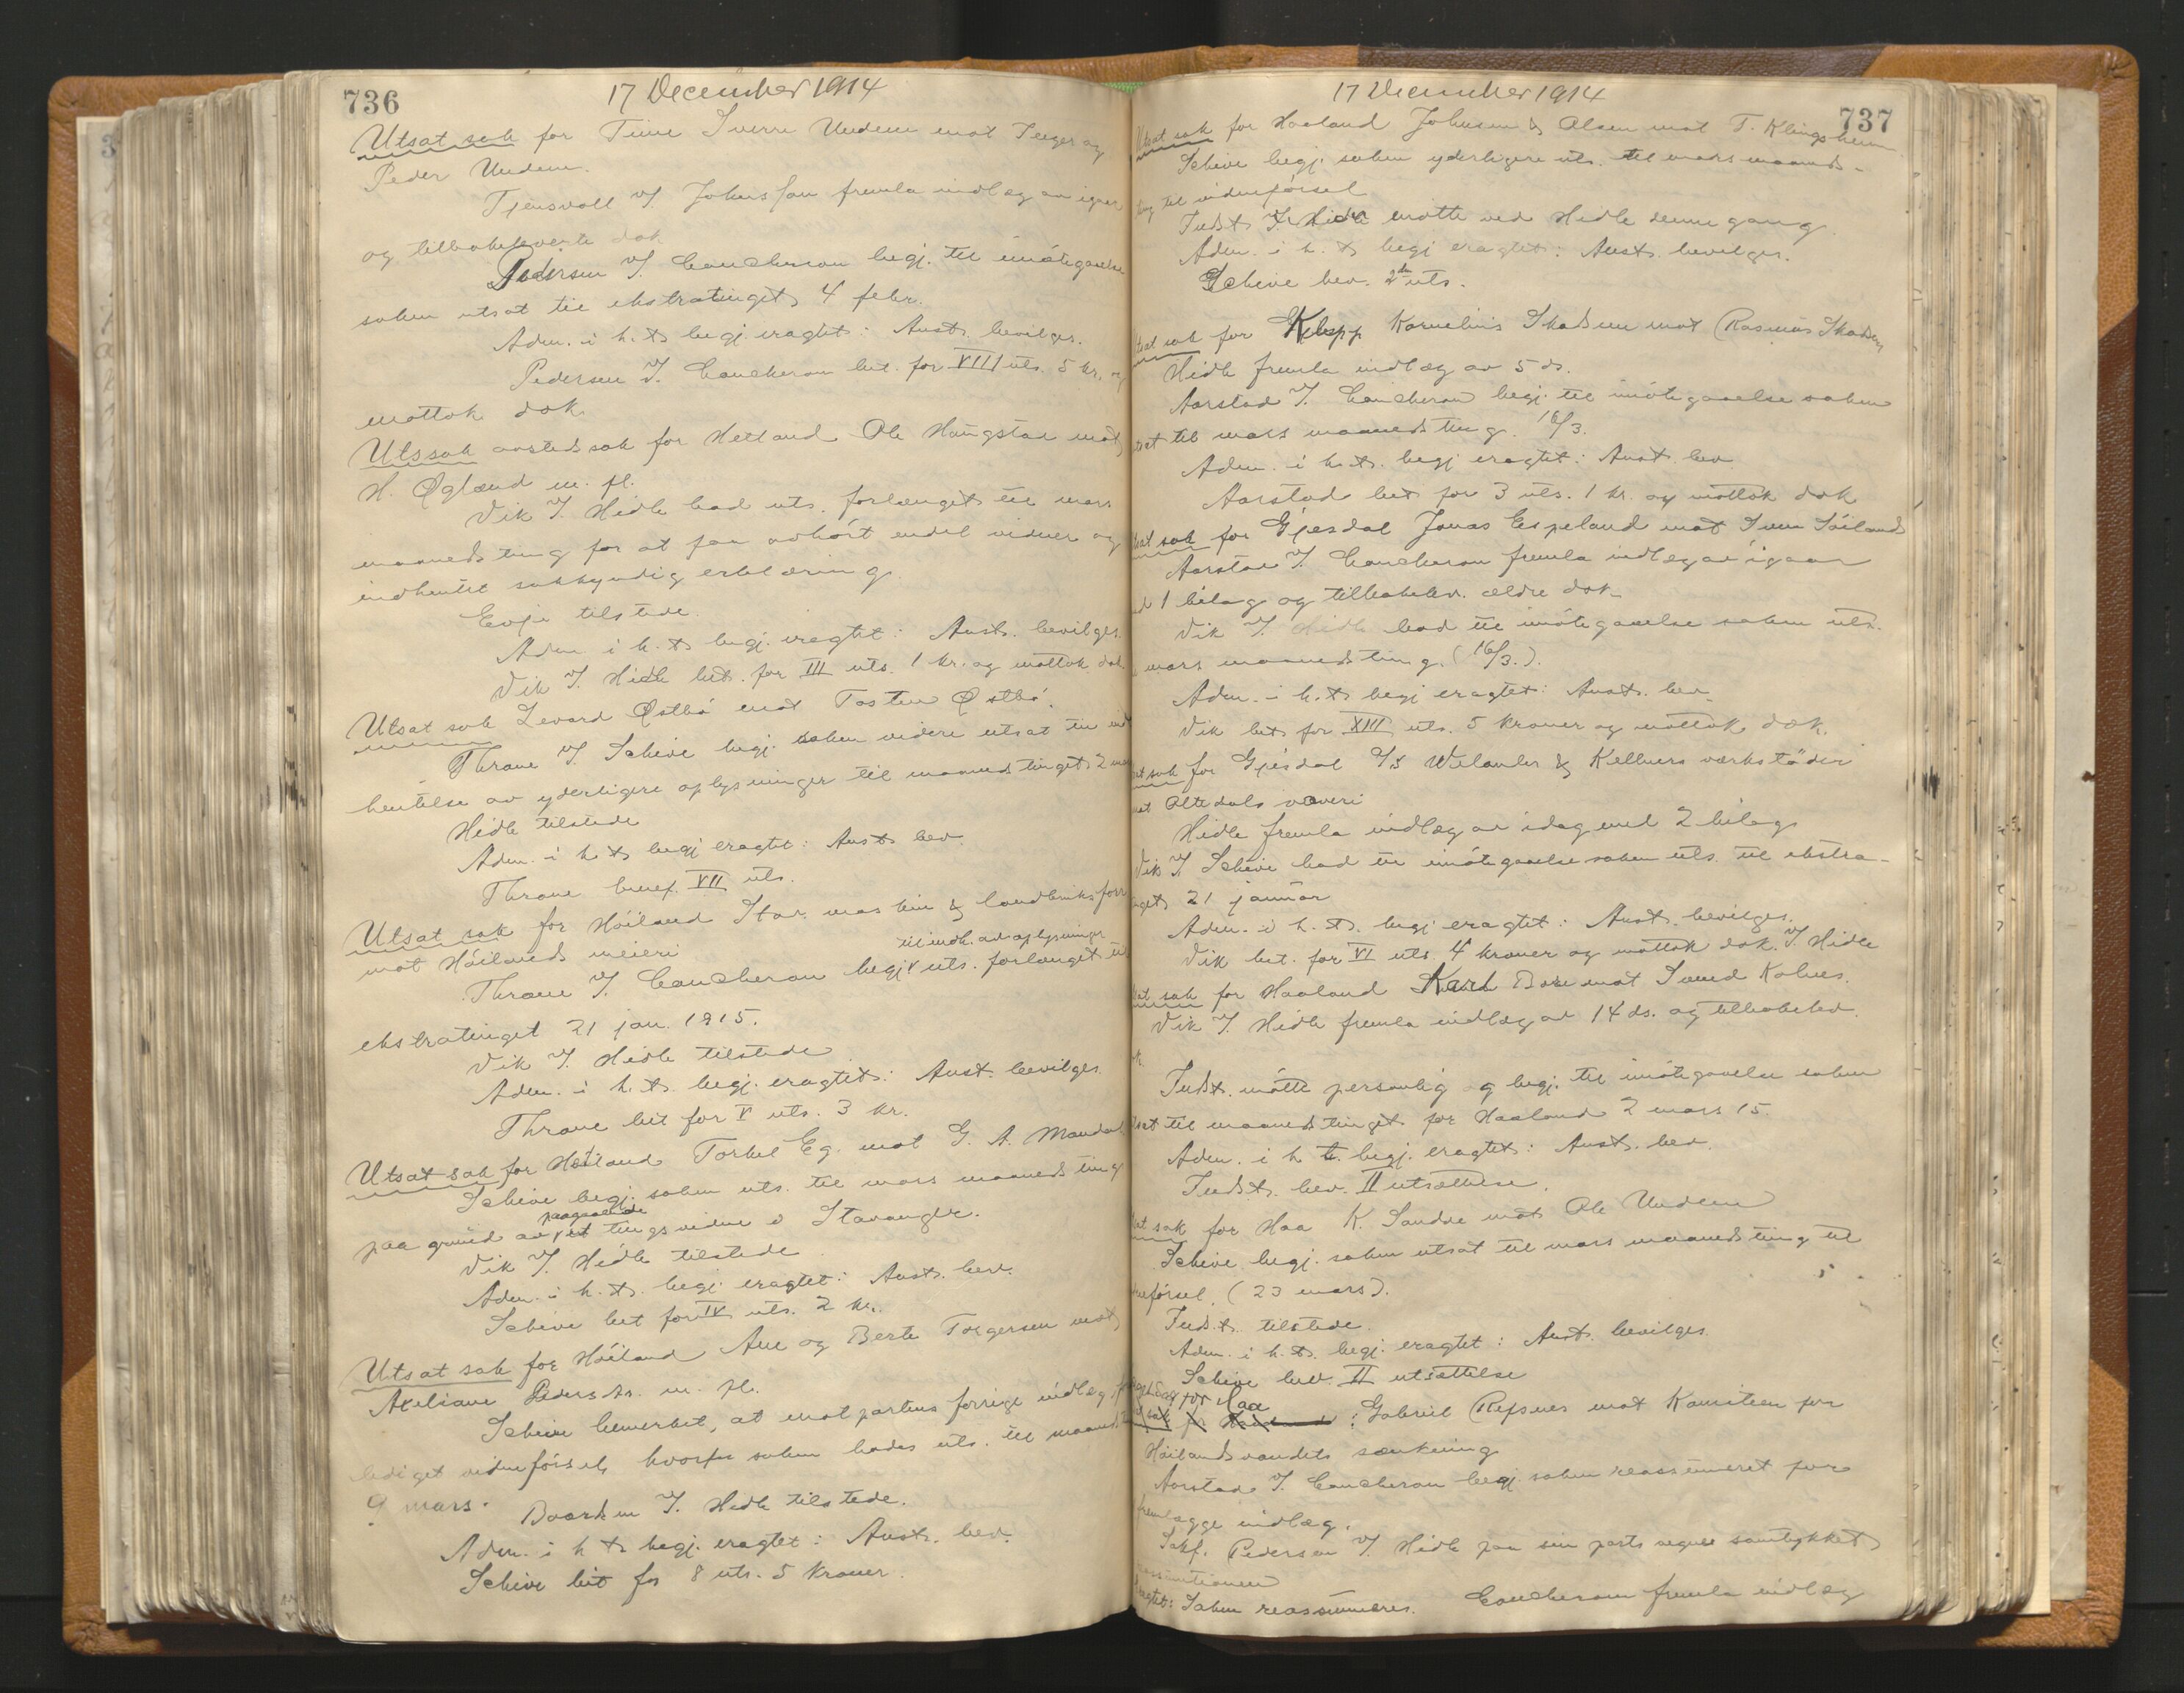 736
17 December 1914
Utsat sak for Time Sverre Undem mot Inger og
Peder Undem.
Tjensvoll v/ Johnsson fremla indlæg av igaar
og tilbakeleverte dok
Pedersen v/ Caucheron begj. til imötegaaelse
saken utsat til ekstratinget 4 febr.
Adm. i h.t. begj. eragtet: Anst. bevilges.
Pedersen v/ Caucheron bet. for VIII uts. 5 kr. og
mottok dok
Utssak aastedssak for Hetland Ole Haugstad mot
H. Øgland m. fl.
Vik v/ Hidle bad uts. forlænget til mars
maanedsting for at faa avhört endel vidner og
indhentet sakkyndig erklæring
Evje tilstede.
Adm i h.t. begj. eragtet: Anst. bevilges.
Vik v/ Hidle bet. for III uts. 1 kr. og mottok dok.
Utsat sak Levard Østbö mot Tosten Østbö.
Thrane v/ Scheie begj. saken videre utsat til ind
hentelse av yderligere oplysninger til maanedstinget 2 mars
Hidle tilstede
Adm. i h.t. begj eragtet: Anst. bev.
Thrane benef. VII uts.
Utsat sak for Höiland Stav. maskin & landbruksforr
mot Höilands meieri
til indh. av oplysninger
Thrane v/ Caucheron begj uts. forlænget til
ekstratinget 21 jan. 1915.
Vik v/ Hidle tilstede
Adm. i h.t. begj. eragtet: Anst. bevilges
Thrane bet for V uts. 3 kr.
Utsat sak for Höiland Torkel Eg. mot G. A. Mandal
Scheie begj. saken uts. til mars maanedsting
paagaaende
paa grund av et tingsvidne i Stavanger.
Vik v/ Hidle tilstede
Adm. i h.t. begj. eragtet: Anst. bev.
Scheie bet for IV uts. 2 kr.
Utsat sak for Höiland Ane og Berte Torgersen mot
Axeliane Pedersdtr. m. fl.
Scheie bemerket, at motpartens forrige indlæg
lediget vidneförsel, hvorfor saken bades uts. til maaneds
9 mars. Baardsen v/ Hidle tilstede.
Adm. i h t. begj. eragtet: Anst. bev.
Scheie bet for 8 uts. 5 kroner.
737
17 December 1914
Utsat sak for Haaland Johnsen & Olsen mot T. Klingsheim
Scheie begj. saken yderligere uts. til mars maaneds-
ting til vidneförsel
Indst. mötte ved Hidle denne gang.
Adm. i h.t. begj eragtet: Anst. bevilges.
Scheie bev. 2den uts.
Utsat sak for Klepp Kornelius Skadsem mot Rasmus Skadsem
Hidle fremla indlæg av 5 ds.
Aarstad v/ Caucheron begj. til imötegaaelse saken
utsat til mars maanedsting. 16/3.
Adm. i h.t. begj eragtet: Anst. bev
Aarstad bet for 3 uts. 1 kr. og mottok dok
Utsat sak for Gjesdal Jonas Espeland mot Sven Söiland
Aarstad v/ Caucheron fremla indlæg av igaar
med 1 bilag og tilbakelev. ældre dok.
Vik v/ Hidle bad til imötegaaelse saken uts.
mars maanedsting. (16/3.).
Adm. i h.t. begj eragtet: Anst. bev.
Vik bet for XIII uts. 5 kroner og mottok dok.
Utsat sak for Gjesdal A/S Wilander & Kellners værkstäder
mot Oltedals væveri
Hidle fremla indlæg av idag med 2 bilag
Vik v/ Scheie bad til imötegaaelse saken uts. til ekstra-
tinget 21 januar
Adm. i h.t. begj eragtet: Anst. bevilges.
Vik bet. for VI uts 4 kroner og mottok dok. v/ Hidle
Utsat sak for Haaland Karl Bore mot Svend Kolnes.
Vik v/ Hidle fremla indlæg av 14 ds. og tilbakelev.
dok
Indst. mötte personlig og begj. til imötegaaelse saken
utsat til maanedstinget for Haaland 2 mars 15.
Adm. i h t. begj. eragtet: Anst. bev.
Indst. bev. II utsættelse.
Utsat sak for Haa K. Sandve mot Ole Undem
Scheie begj. saken utsat til mars maanedsting til
vidneförsel. (23 mars).
Indst. tilstede.
Adm. i h.t. begj. eragtet: Anst. bevilges.
Scheie bev II utsættelse
for Haa
: Gabriel Refsnes mot Komiteen for
Höilandsvandets sænkning
Aarstad v/ Caucheron begj. saken reassumeret for
fremlægge indlæg.
Sakf. Pedersen v/ Hidle paa sin parts vegne samtykket
reassumtionen
Eragtet: Saken reassumeres. Caucheron fremla indlæg